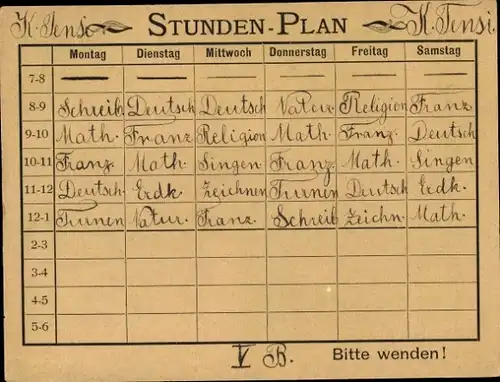 K. Jensi STUNDEN-PLAN K. Tensi.
Montag Dienstag Mittwoch Donnerstag Freitag Samstag
7-8 — — — — — —
8-9 Schreib. Deutsch Deutsch Natur. Religion Franz.
9-10 Math. Franz Religion Math. Franz. Deutsch
10-11 Franz. Math. Singen Franz. Math. Singen
11-12 Deutsch. Erdk. Zeichnen Turnen Deutsch Erdk.
12-1 Turnen Natur. Franz. Schreib Zeichn. Math.
2-3
3-4
4-5
5-6
V B. Bitte wenden!